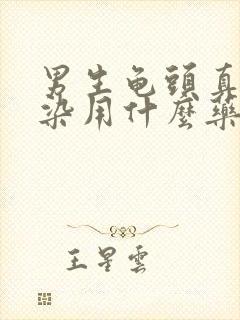 男生龟頭真
染用什麼藥
王星雲